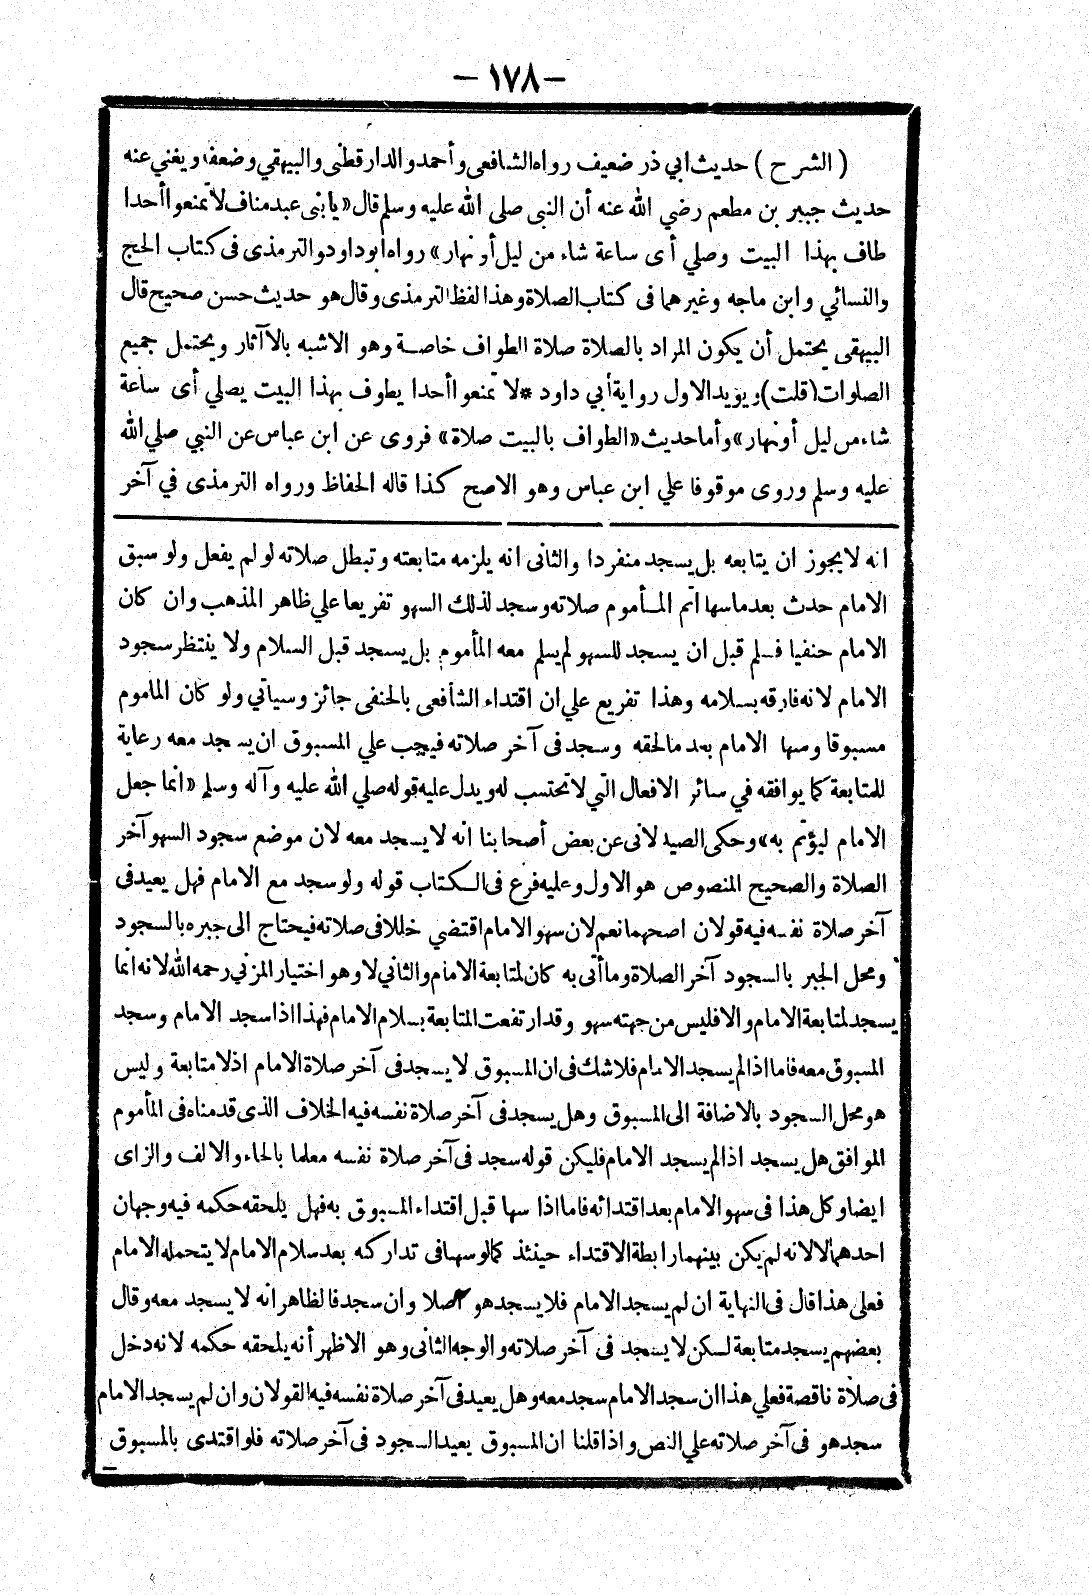 — ١٧٨ —
( الشرح ) حديث ابي ذر ضعيف رواه الشافعى وأحمد والدارقطنى والبيهقي وضعفه ويغني عنه
حديث جبير بن مطعم رضي الله عنه أن النبى صلى الله عليه وسلم قال « يا بنى عبد مناف لا تمنعوا أحدا
طاف بهذا البيت وصلي أى ساعة شاء من ليل أو نهار » رواه ابو داود والترمذى فى كتاب الحج
والنسائي وابن ماجه وغيرهما فى كتاب الصلاة وهذا لفظ الترمذى وقال هو حديث حسن صحيح قال
البيهقى يحتمل أن يكون المراد بالصلاة صلاة الطواف خاصة وهو الاشبه بالآثار ويحتمل جميع
الصلوات (قلت) ويؤيد الاول رواية أبي داود * لا تمنعوا أحدا يطوف بهذا البيت يصلي أى ساعة
شاء من ليل أو نهار » وأما حديث « الطواف بالبيت صلاة » فروى عن ابن عباس عن النبي صلي الله
عليه وسلم وروى موقوفا علي ابن عباس وهو الاصح كذا قاله الحفاظ ورواه الترمذى في آخر
انه لا يجوز ان يتابعه بل يسجد منفردا والثانى انه يلزمه متابعته وتبطل صلاته لو لم يفعل ولو سبق
الامام حدث بعد ما سها اتم المأموم صلاته وسجد لذلك السهو تفريعا علي ظاهر المذهب وان كان
الامام حنفيا فسلم قبل ان يسجد للسهو لم يسلم معه المأموم بل يسجد قبل السلام ولا ينتظر سجود
الامام لانه فارقه بسلامه وهذا تفريع علي ان اقتداء الشافعى بالحنفى جائز وسياتي ولو كان الماموم
مسبوقا وسها الامام بعد ما لحقه وسجد فى آخر صلاته فيجب علي المسبوق ان يسجد معه رعاية
للمتابعة كما يوافقه في سائر الافعال التي لا تحتسب له ويدل عليه قوله صلي الله عليه وآله وسلم « انما جعل
الامام ليؤتم به » وحكى الصيدلانى عن بعض أصحابنا انه لا يسجد معه لان موضع سجود السهو آخر
الصلاة والصحيح المنصوص هو الاول وعليه فرع فى الكتاب قوله ولو سجد مع الامام فهل يعيد فى
آخر صلاة نفسه فيه قولان اصحهما نعم لان سهو الامام اقتضي خللا فى صلاته فيحتاج الى جبره بالسجود
ومحل الجبر بالسجود آخر الصلاة وما أتى به كان لمتابعة الامام والثاني لا وهو اختيار المزني رحمه الله لانه انما
يسجد لمتابعة الامام والا فليس من جهته سهو وقد ارتفعت المتابعة بسلام الامام فهذا اذا سجد الامام وسجد
المسبوق معه فاما اذا لم يسجد الامام فلا شك فى ان المسبوق لا يسجد فى آخر صلاة الامام اذ لا متابعة وليس
هو محل السجود بالاضافة الى المسبوق وهل يسجد فى آخر صلاة نفسه فيه الخلاف الذى قدمناه فى المأموم
الموافق هل يسجد اذا لم يسجد الامام فليكن قوله سجد فى آخر صلاة نفسه معلما بالحاء والالف والزاى
ايضا وكل هذا فى سهو الامام بعد اقتدائه فاما اذا سها قبل اقتداء المسبوق به فهل يلحقه حكمه فيه وجهان
احدهما لا لانه لم يكن بينهما رابطة الاقتداء حينئذ كما لو سها فى تداركه بعد سلام الامام لا يتحمله الامام
فعلى هذا قال فى النهاية ان لم يسجد الامام فلا يسجد هو اصلا وان سجد فالظاهر انه لا يسجد معه وقال
بعضهم يسجد متابعة لسكن لا يسجد فى آخر صلاته والوجه الثانى وهو الاظهر أنه يلحقه حكمه لانه دخل
فى صلاة ناقصة فعلي هذا ان سجد الامام سجد معه وهل يعيد فى آخر صلاة نفسه فيه القولان وان لم يسجد الامام
سجد هو فى آخر صلاته علي النص واذا قلنا ان المسبوق يعيد السجود فى آخر صلاته فلو اقتدى بالمسبوق